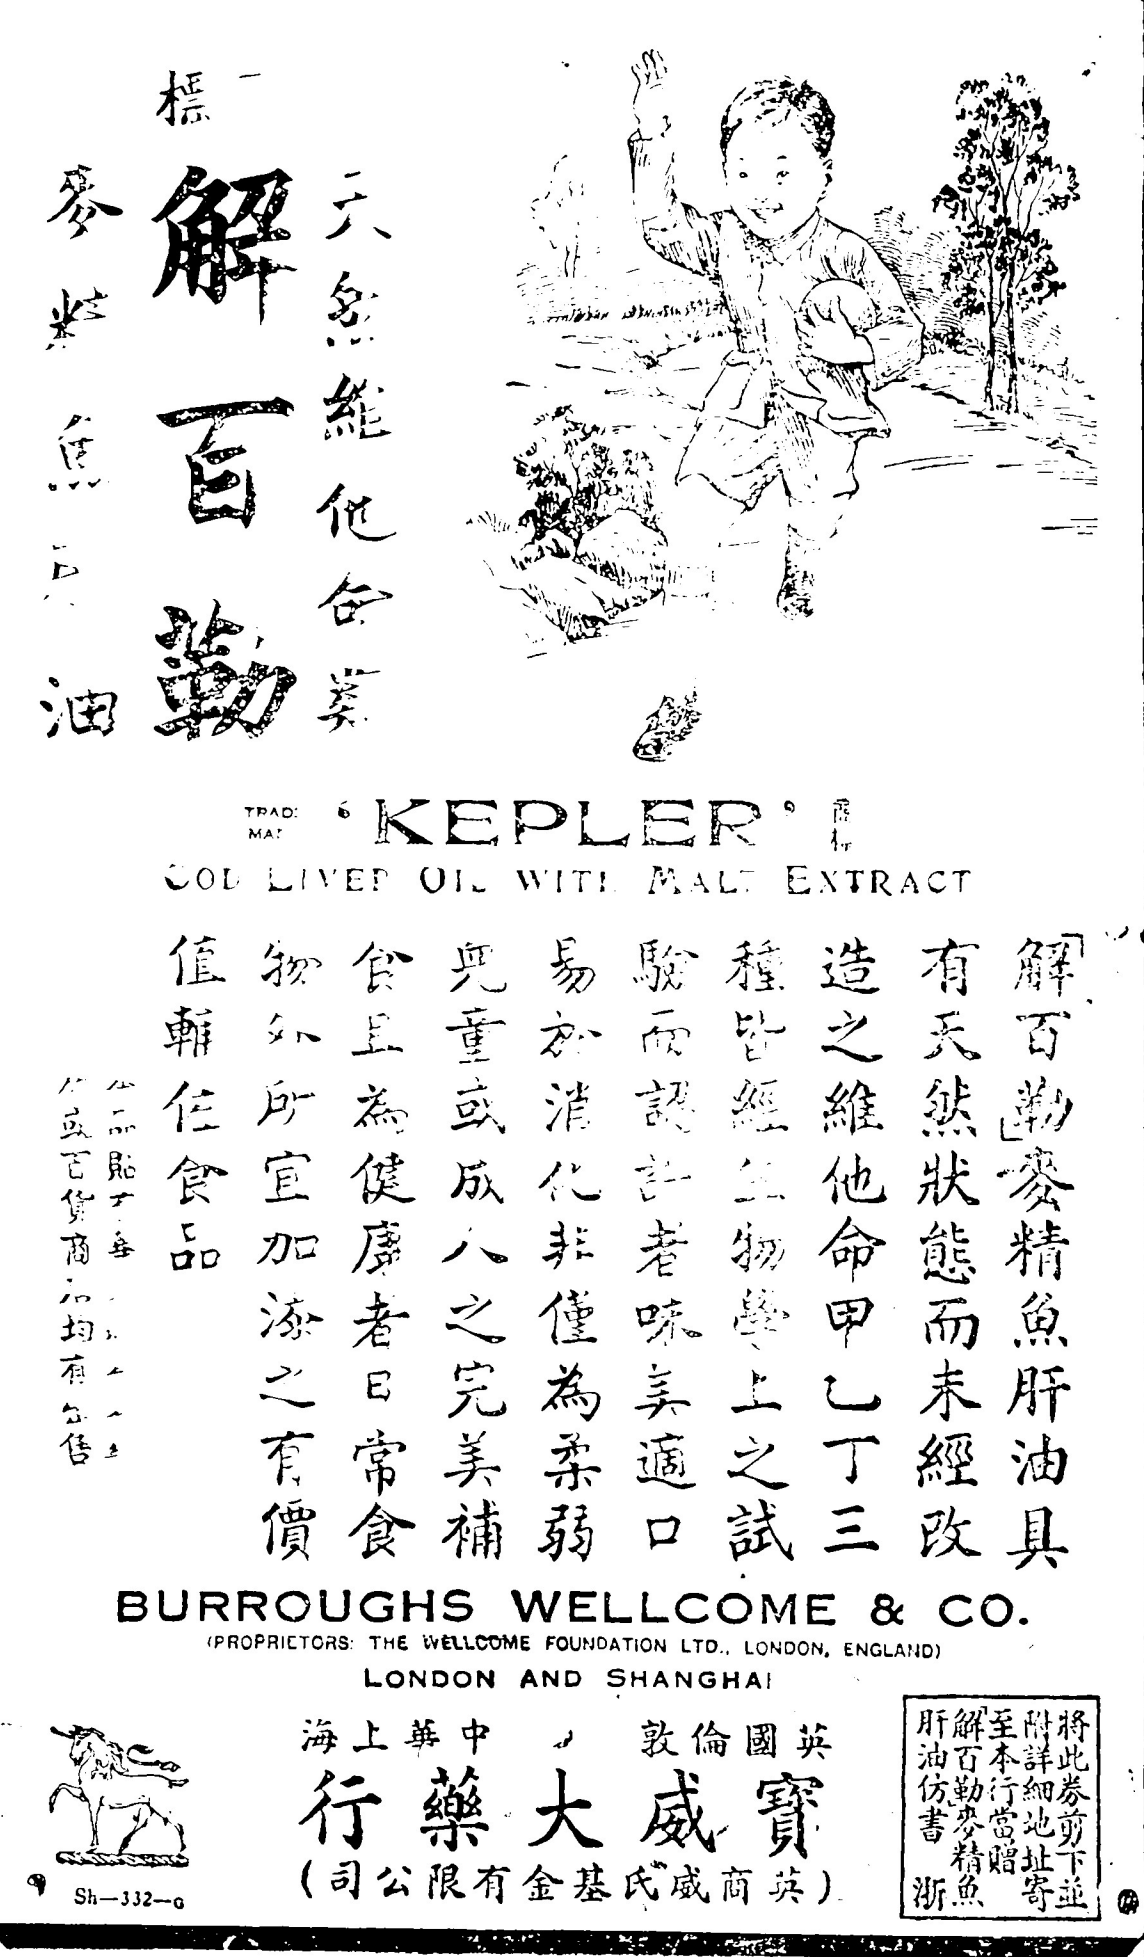 天然維他命
標
解百勒
麥精魚油
'KEPLER'
COD LIVER OIL WITH MALT EXTRACT
「解百勒」麥精魚肝油具
有天然狀態而未經改
造之維他命甲乙丁三
種皆經生物學上之試
驗而認許者味美適口
易於消化非僅為柔弱
兒童或成人之完美補
食且為健康者日常食
物外所宜加添之有價
值輔佐食品
或百貨商均有售
BURROUGHS WELLCOME & CO.
(PROPRIETORS: THE WELLCOME FOUNDATION LTD., LONDON, ENGLAND)
LONDON AND SHANGHAI
英國倫敦 中華上海
寶威大藥行
(英商威氏基金有限公司)
將此券剪下並
附詳細地址寄
至本行當贈
「解百勒」麥精魚
肝油仿書 浙
Sh—332—G